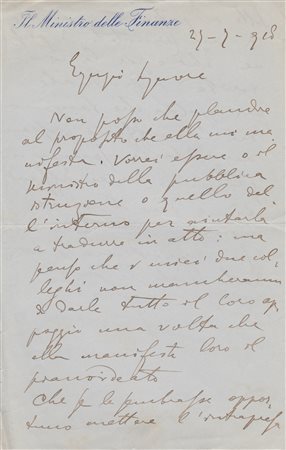 Il Ministro delle Finanze
29-7-918
Egregio Signore
Non posso che plaudire
al proposito che ella mi ma
nifesta. Vorrei essere o il
Ministro della pubblica
istruzione o quello del
l'interno per aiutarla
a tradurre in atto: ma
penso che i miei due col
leghi non mancheranno
di darle tutto il loro ap
poggio una volta che
ella manifesti loro il
preordinato
Che se le piacesse oppor
tuno mettere l'intrapresa